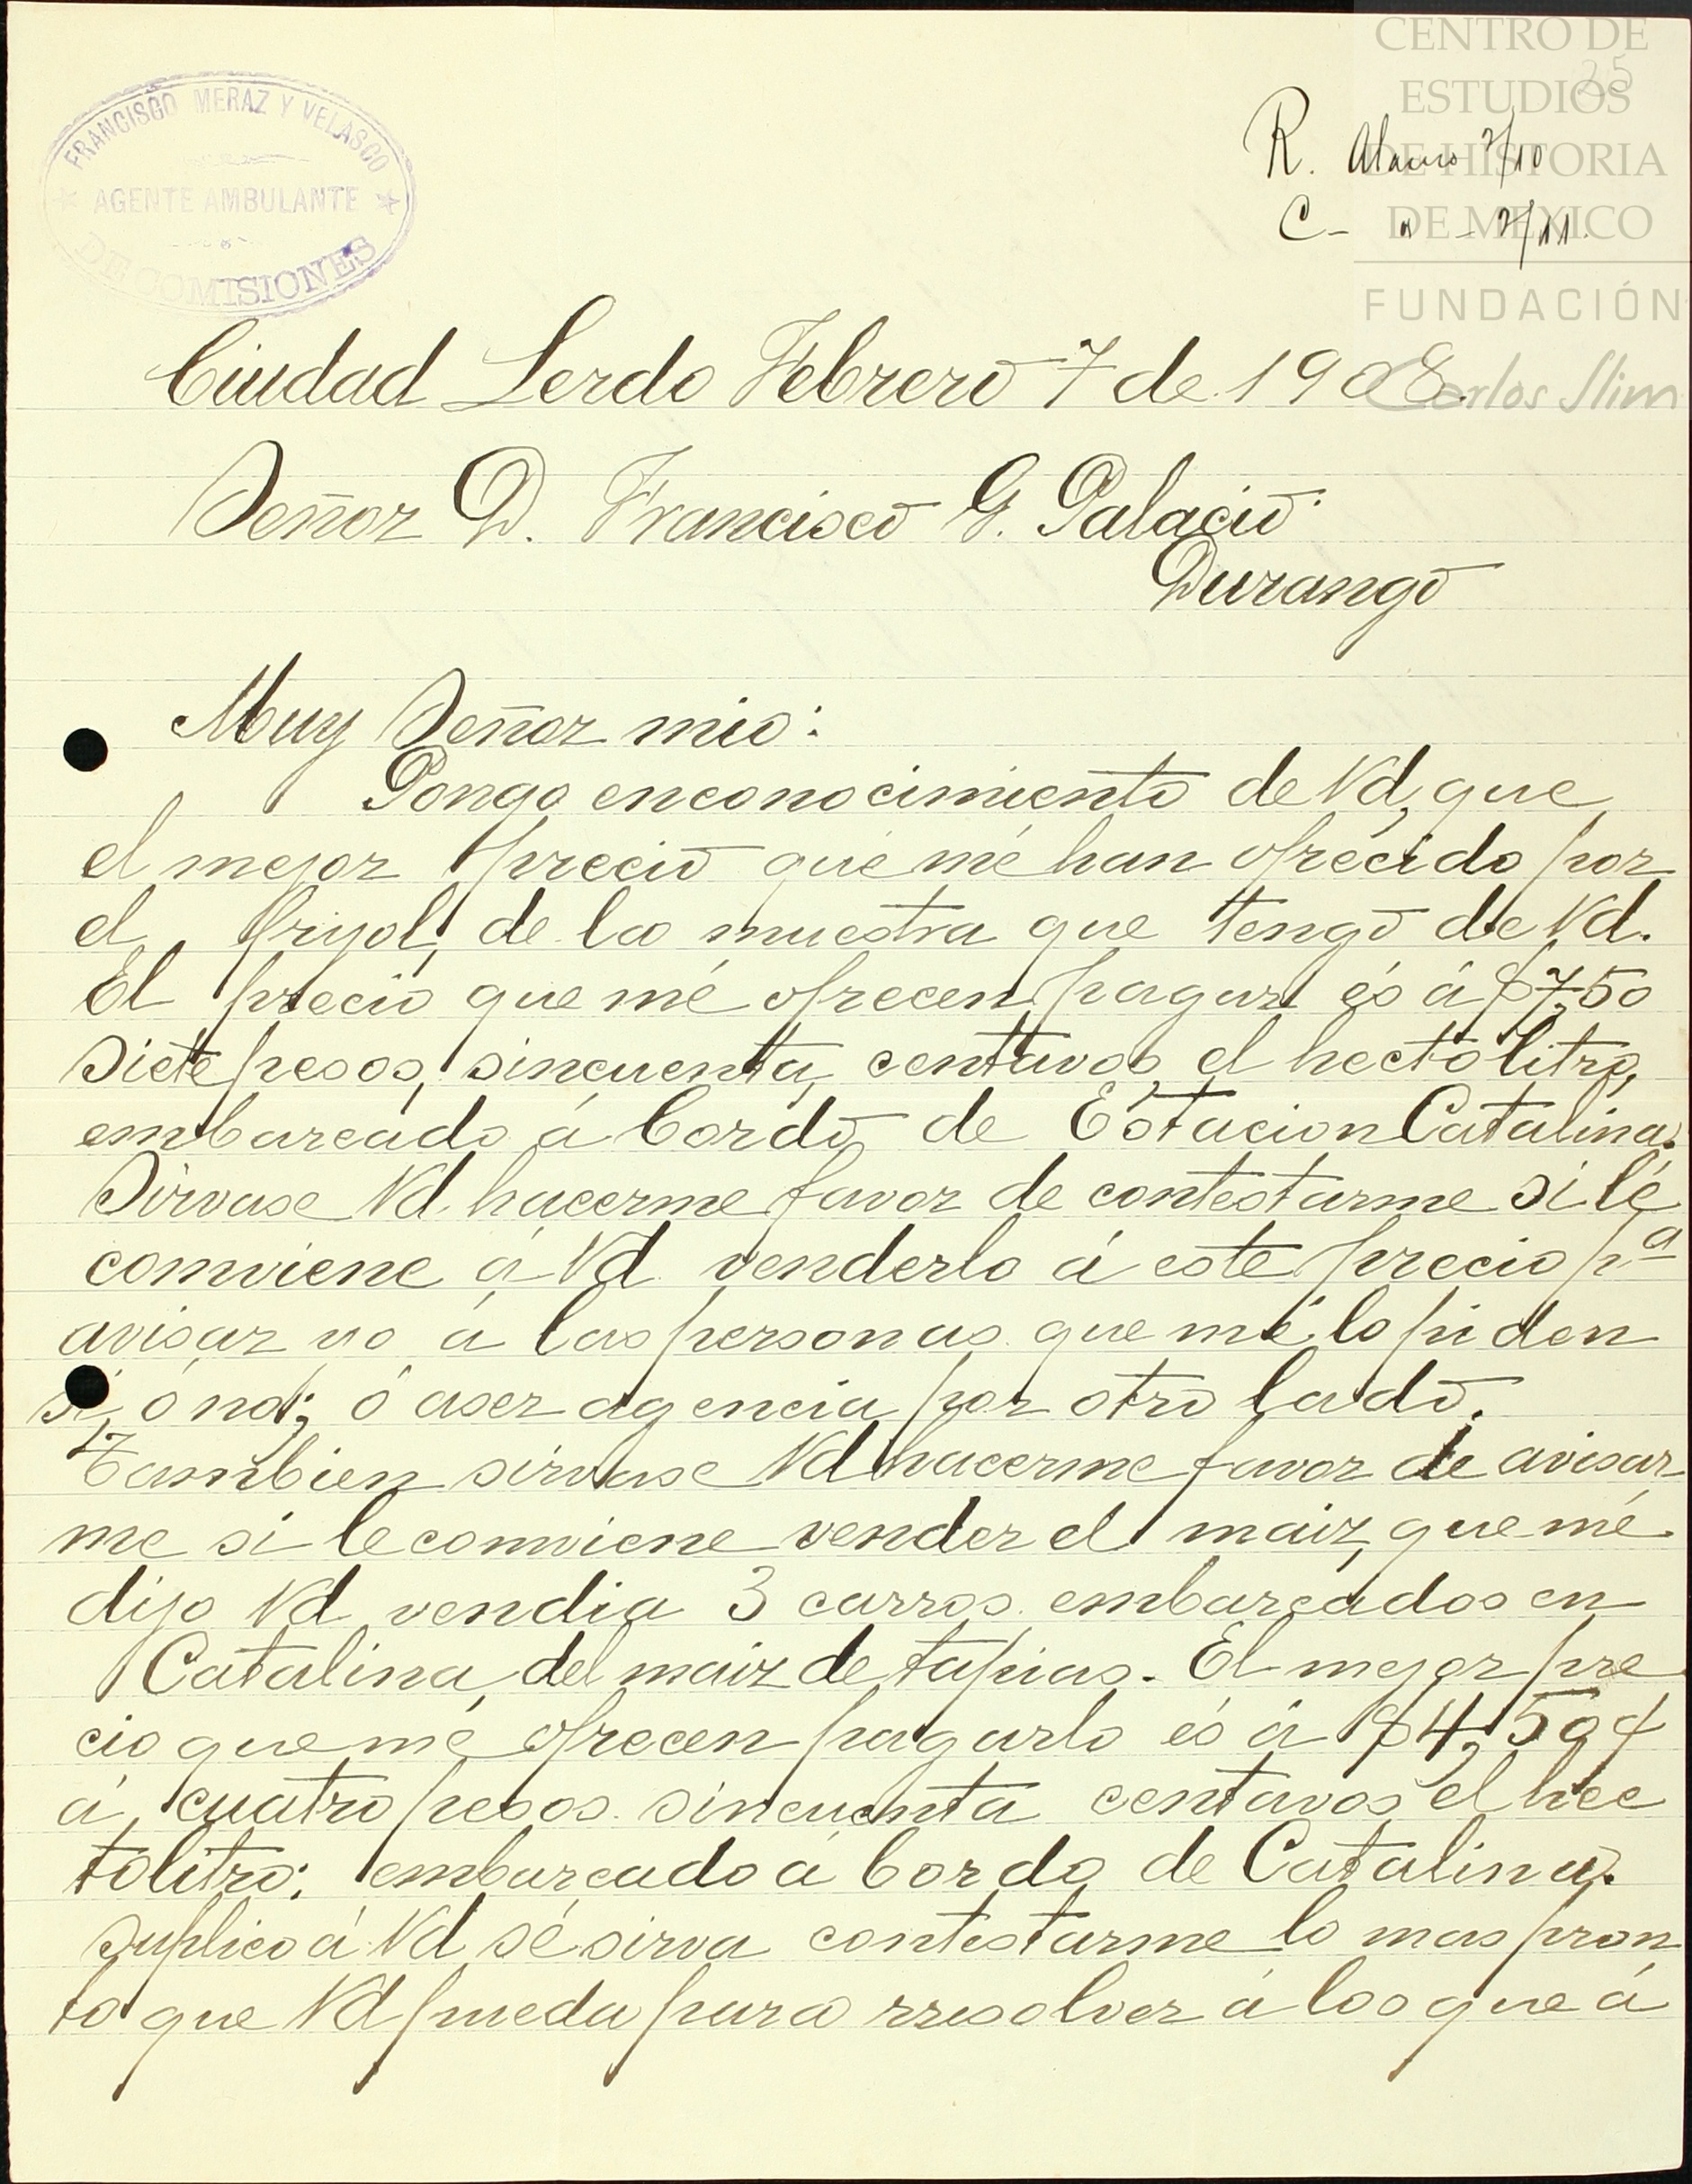 CENTRO DE
ESTUDIOS
DE HISTORIA
DE MÉXICO
FUNDACIÓN
Carlos Slim
25
FRANCISCO MERAZ Y VELASCO
AGENTE AMBULANTE
DE COMISIONES
R. 2/10
C - " - 2/11.
Ciudad Lerdo Febrero 7 de 1908.
Señor D. Francisco G. Palacio
Durango
Muy Señor mio:
Pongo enconocimiento de Vd, que
el mejor precio que mé han ofrecido por
el frijol, de la muestra que tengo de Vd.
El precio que mé ofrecen pagar és á $7,50
Siete pesos, sincuenta, centavos el hectolitro,
embarcado á bordo de Estacion Catalina.
Sirvase Vd. hacerme favor de contestarme si lé
comviene á Vd venderlo á este precio pª
avisar yo á las personas que mé lo piden
si, ó no; ó aser agencia por otro lado.
Tambien sirvase Vd hacerme favor de avisar
me si le comviene vender el maiz, que mé
dijo Vd vendia 3 carros embarcados en
Catalina, del maiz de tapias. El mejor pre
cio que mé ofrecen pagarlo és á $4,50¢
á, cuatro pesos sincuenta centavos el hec
tolitro; embarcado á bordo de Catalina.
Suplico á Vd sé sirva contestarme lo mas pron
to que Vd pueda para rresolver á los que á